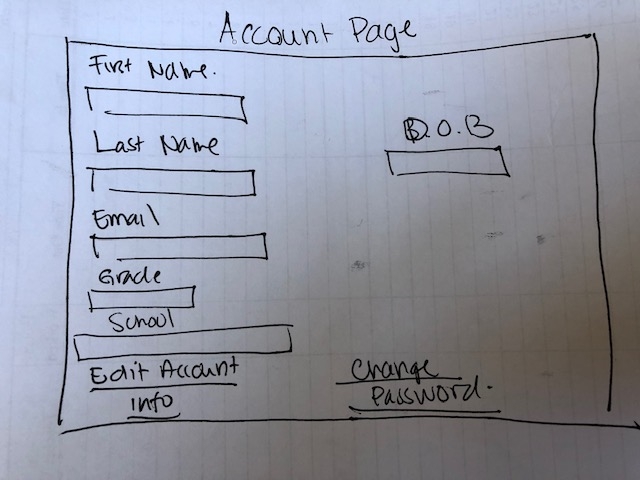 Account Page
First Name.
Last Name
D.O.B
Email
Grade
School
Edit Account
Info
Change
Password.